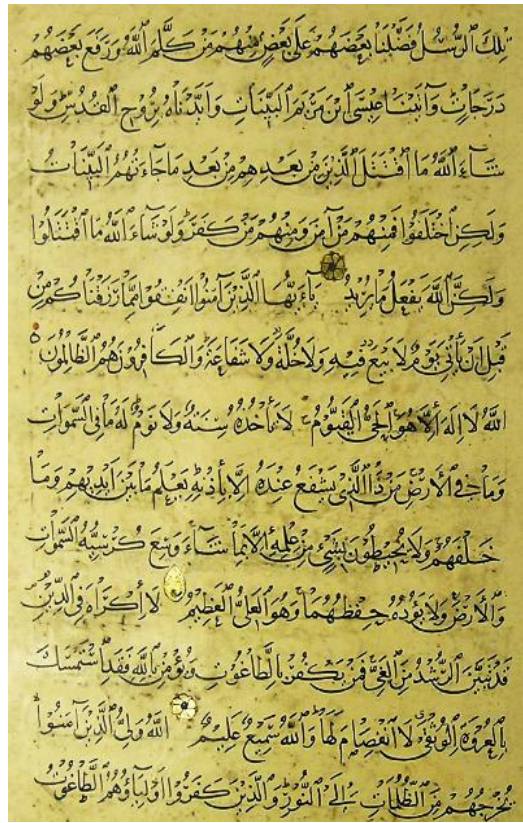 تِلْكَ ٱلرُّسُلُ فَضَّلْنَا بَعْضَهُمْ عَلَىٰ بَعْضٍ مِنْهُمْ مَنْ كَلَّمَ ٱللَّهُ وَرَفَعَ بَعْضَهُمْ
دَرَجَاتٍ وَآتَيْنَا عِيسَى ٱبْنَ مَرْيَمَ ٱلْبَيِّنَاتِ وَأَيَّدْنَاهُ بِرُوحِ ٱلْقُدُسِ وَلَوْ
شَآءَ ٱللَّهُ مَا ٱقْتَتَلَ ٱلَّذِينَ مِنْ بَعْدِهِمْ مِنْ بَعْدِ مَا جَاءَتْهُمُ ٱلْبَيِّنَاتُ
وَلَكِنِ ٱخْتَلَفُوا فَمِنْهُمْ مَنْ آمَنَ وَمِنْهُمْ مَنْ كَفَرَ وَلَوْ شَآءَ ٱللَّهُ مَا ٱقْتَتَلُوا
وَلَكِنَّ ٱللَّهَ يَفْعَلُ مَا يُرِيدُ يَاءَيُّهَا ٱلَّذِينَ آمَنُوا أَنْفِقُوا مِمَّا رَزَقْنَاكُمْ مِنْ
قَبْلِ أَنْ يَأْتِيَ يَوْمٌ لَا بَيْعٌ فِيهِ وَلَا خُلَّةٌ وَلَا شَفَاعَةٌ وَٱلْكَافِرُونَ هُمُ ٱلظَّالِمُونَ
ٱللَّهُ لَا إِلَهَ إِلَّا هُوَ ٱلْحَيُّ ٱلْقَيُّومُ لَا تَأْخُذُهُ سِنَةٌ وَلَا نَوْمٌ لَهُ مَا فِي ٱلسَّمَوَاتِ
وَمَا فِي ٱلْأَرْضِ مَنْ ذَا ٱلَّذِي يَشْفَعُ عِنْدَهُ إِلَّا بِإِذْنِهِ يَعْلَمُ مَا بَيْنَ أَيْدِيهِمْ وَمَا
خَلْفَهُمْ وَلَا يُحِيطُونَ بِشَيْءٍ مِنْ عِلْمِهِ إِلَّا بِمَا شَآءَ وَسِعَ كُرْسِيُّهُ ٱلسَّمَوَاتِ
وَٱلْأَرْضَ وَلَا يَؤُدُهُ حِفْظُهُمَا وَهُوَ ٱلْعَلِيُّ ٱلْعَظِيمُ لَا إِكْرَاهَ فِي ٱلدِّينِ
قَدْ تَبَيَّنَ ٱلرُّشْدُ مِنَ ٱلْغَيِّ فَمَنْ يَكْفُرْ بِٱلطَّاغُوتِ وَيُؤْمِنْ بِٱللَّهِ فَقَدِ ٱسْتَمْسَكَ
بِٱلْعُرْوَةِ ٱلْوُثْقَىٰ لَا ٱنْفِصَامَ لَهَا وَٱللَّهُ سَمِيعٌ عَلِيمٌ ٱللَّهُ وَلِيُّ ٱلَّذِينَ آمَنُوا
يُخْرِجُهُمْ مِنَ ٱلظُّلُمَاتِ إِلَى ٱلنُّورِ وَٱلَّذِينَ كَفَرُوا أَوْلِيَاؤُهُمُ ٱلطَّاغُوتُ